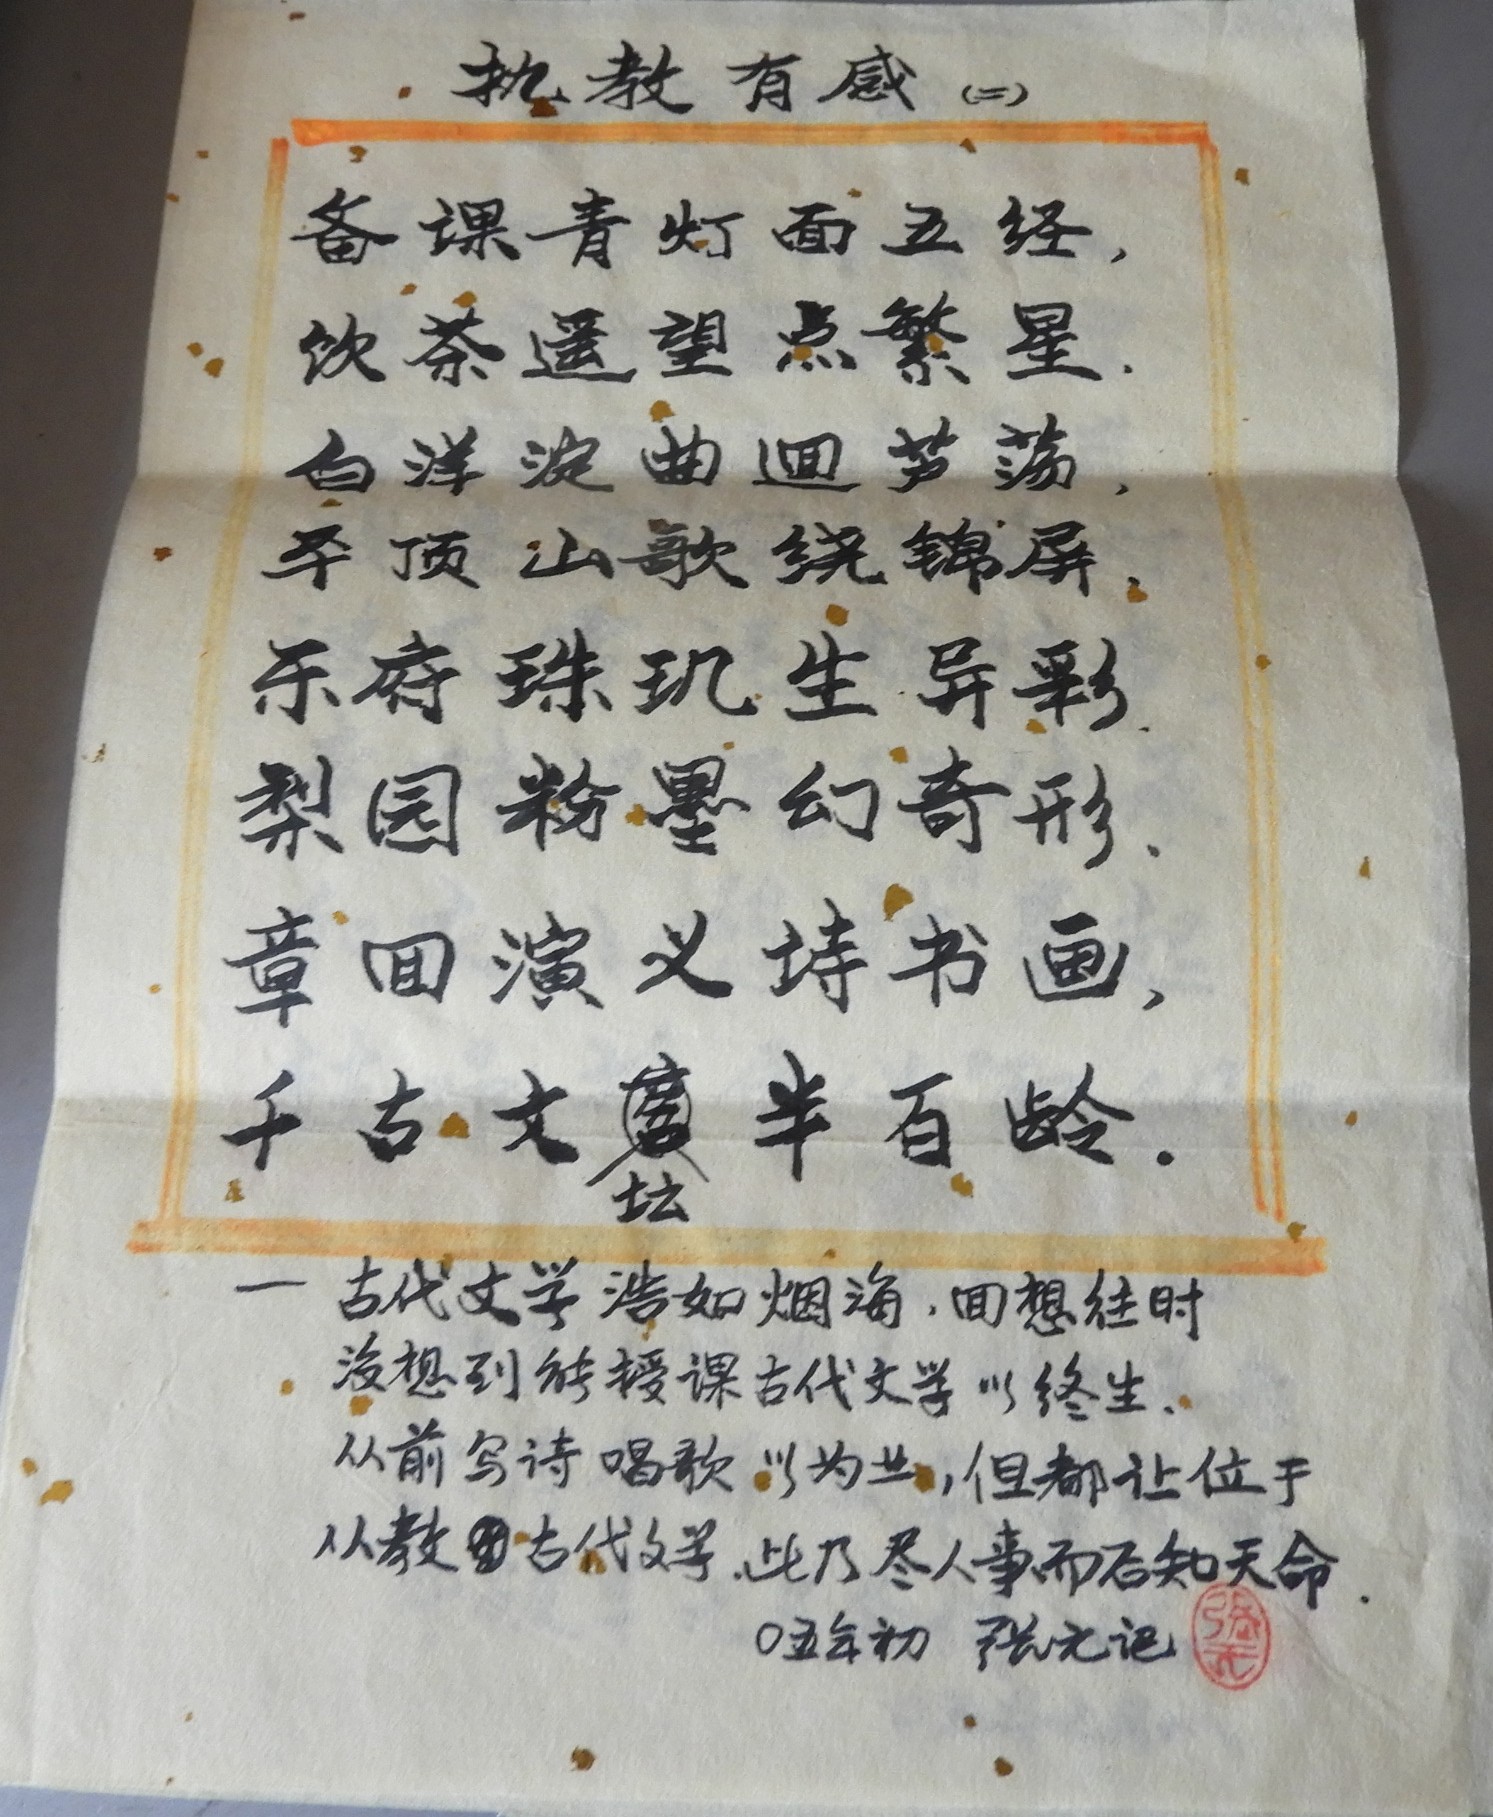 执教有感（二）
备课青灯面五经，
饮茶遥望点繁星．
白洋淀曲迴芦荡，
平顶山歌绕锦屏．
乐府珠玑生异彩．
梨园粉墨幻奇形、
章回演义诗书画，
千古文半百龄．
坛
一 古代文学浩如烟海，回想往时
没想到能授课古代文学以终生．
从前写诗唱歌以为业，但都让位于
从教古代文学．此乃尽人事而后知天命．
〇五年初 张元记
张元